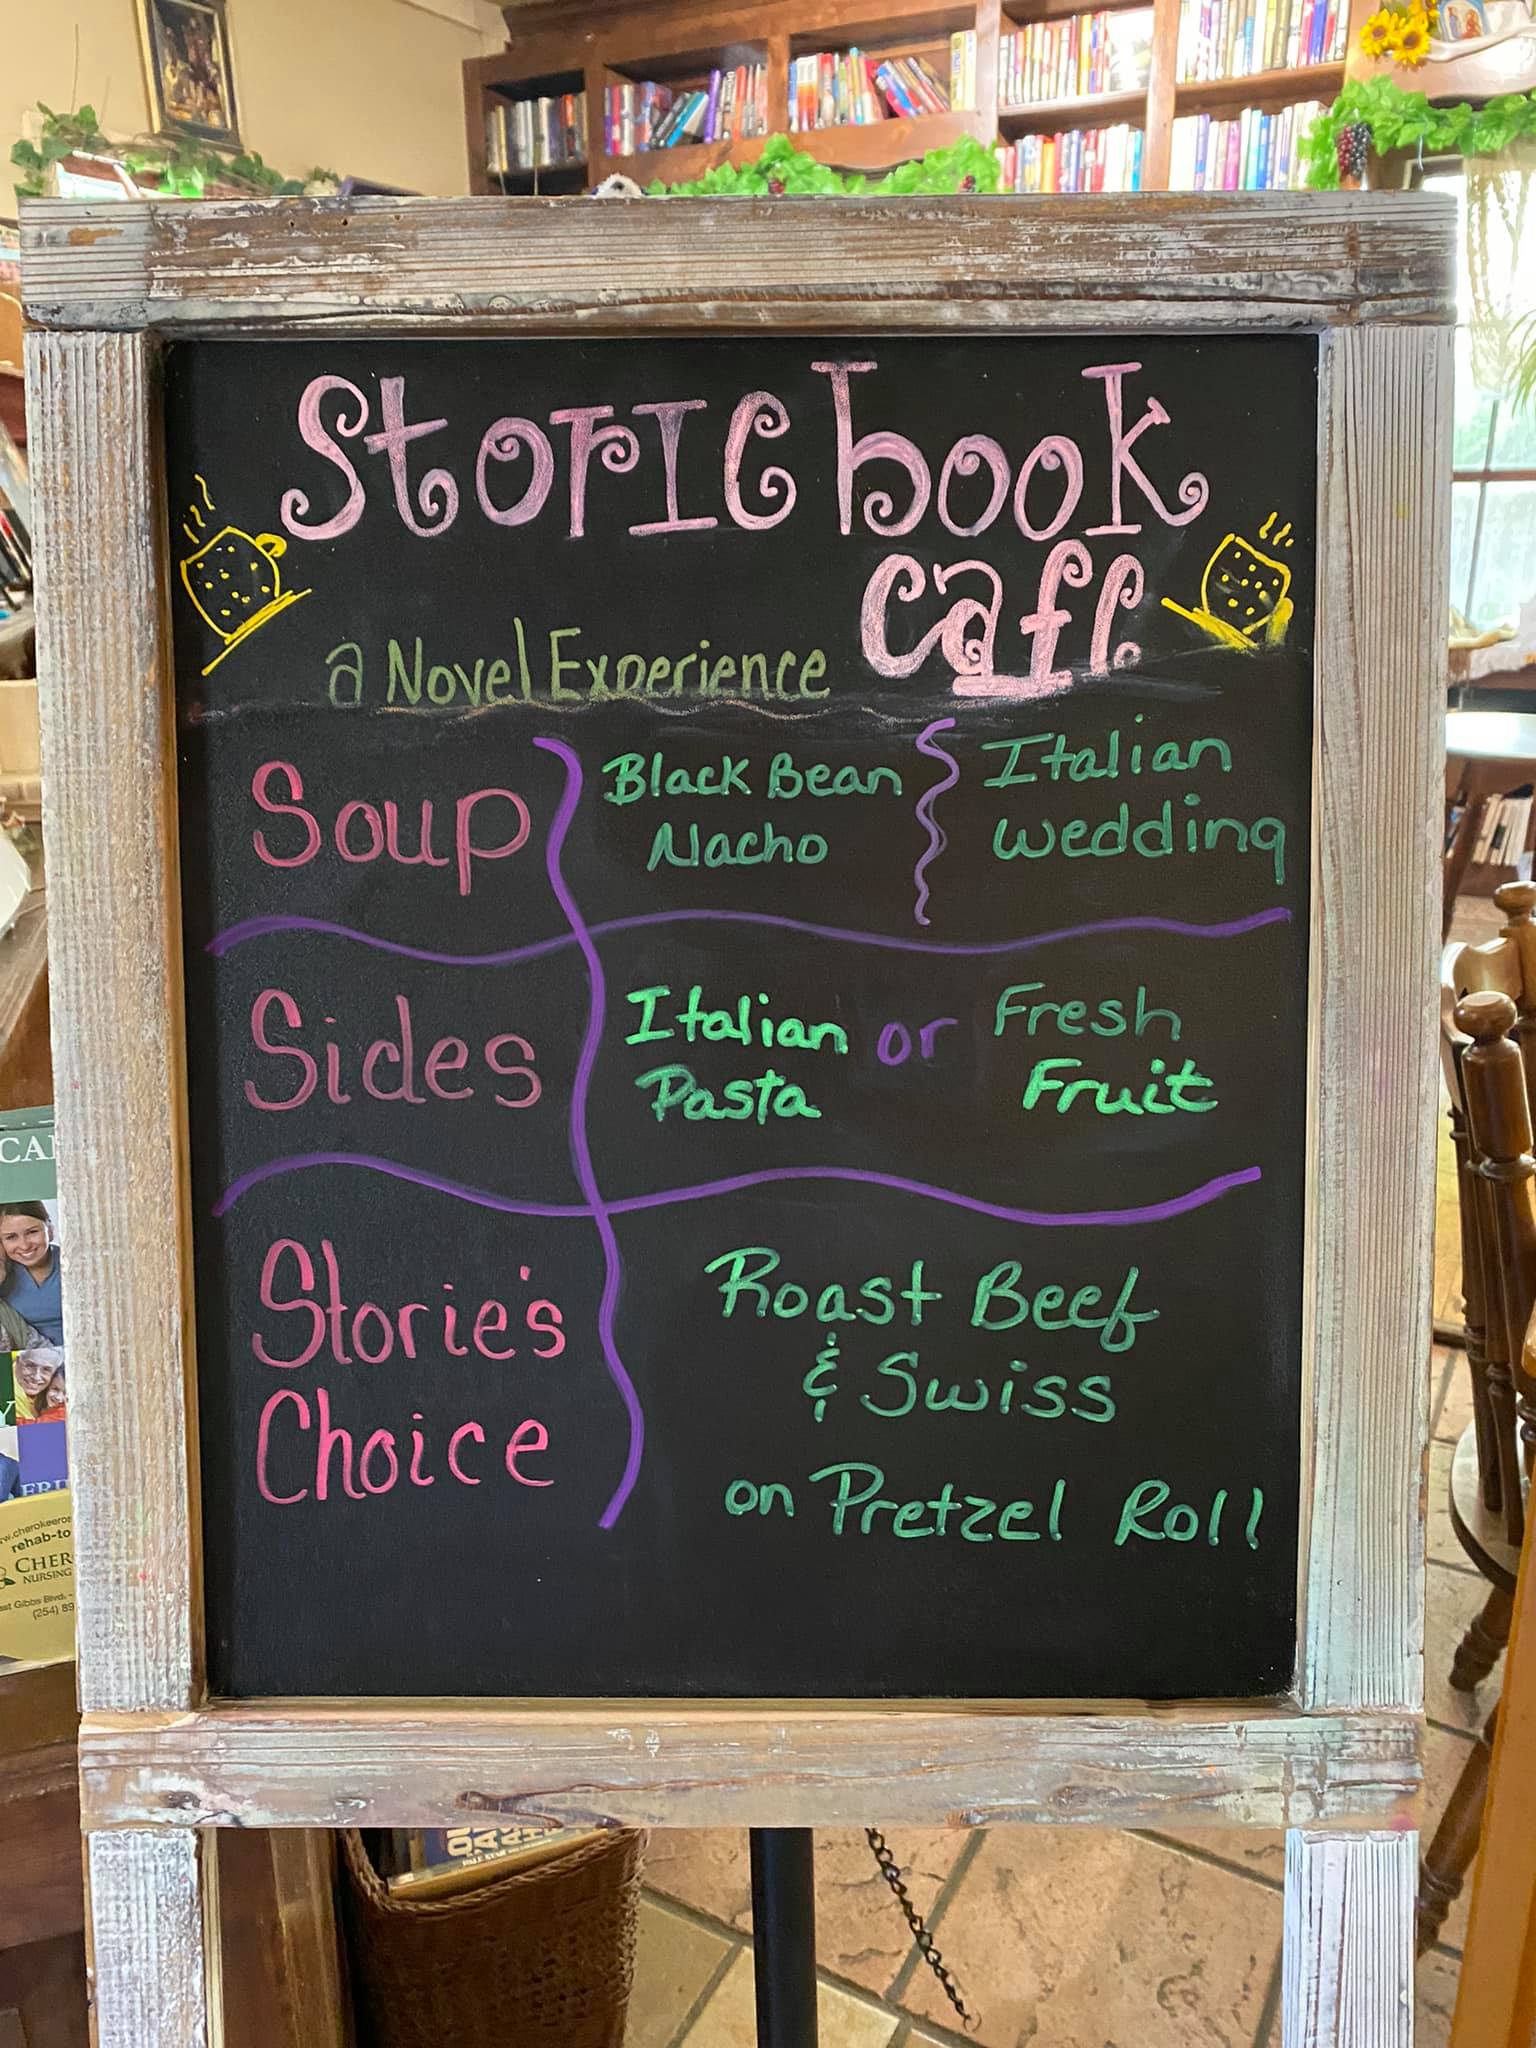 Storiebook
cafe
a Novel Experience
Soup
Black Bean
Nacho
Italian
wedding
Sides
Italian
Pasta
or
Fresh
Fruit
Storie's
Choice
Roast Beef
& Swiss
on Pretzel Roll
rehab-to
CHER
NURSING
(254) 89